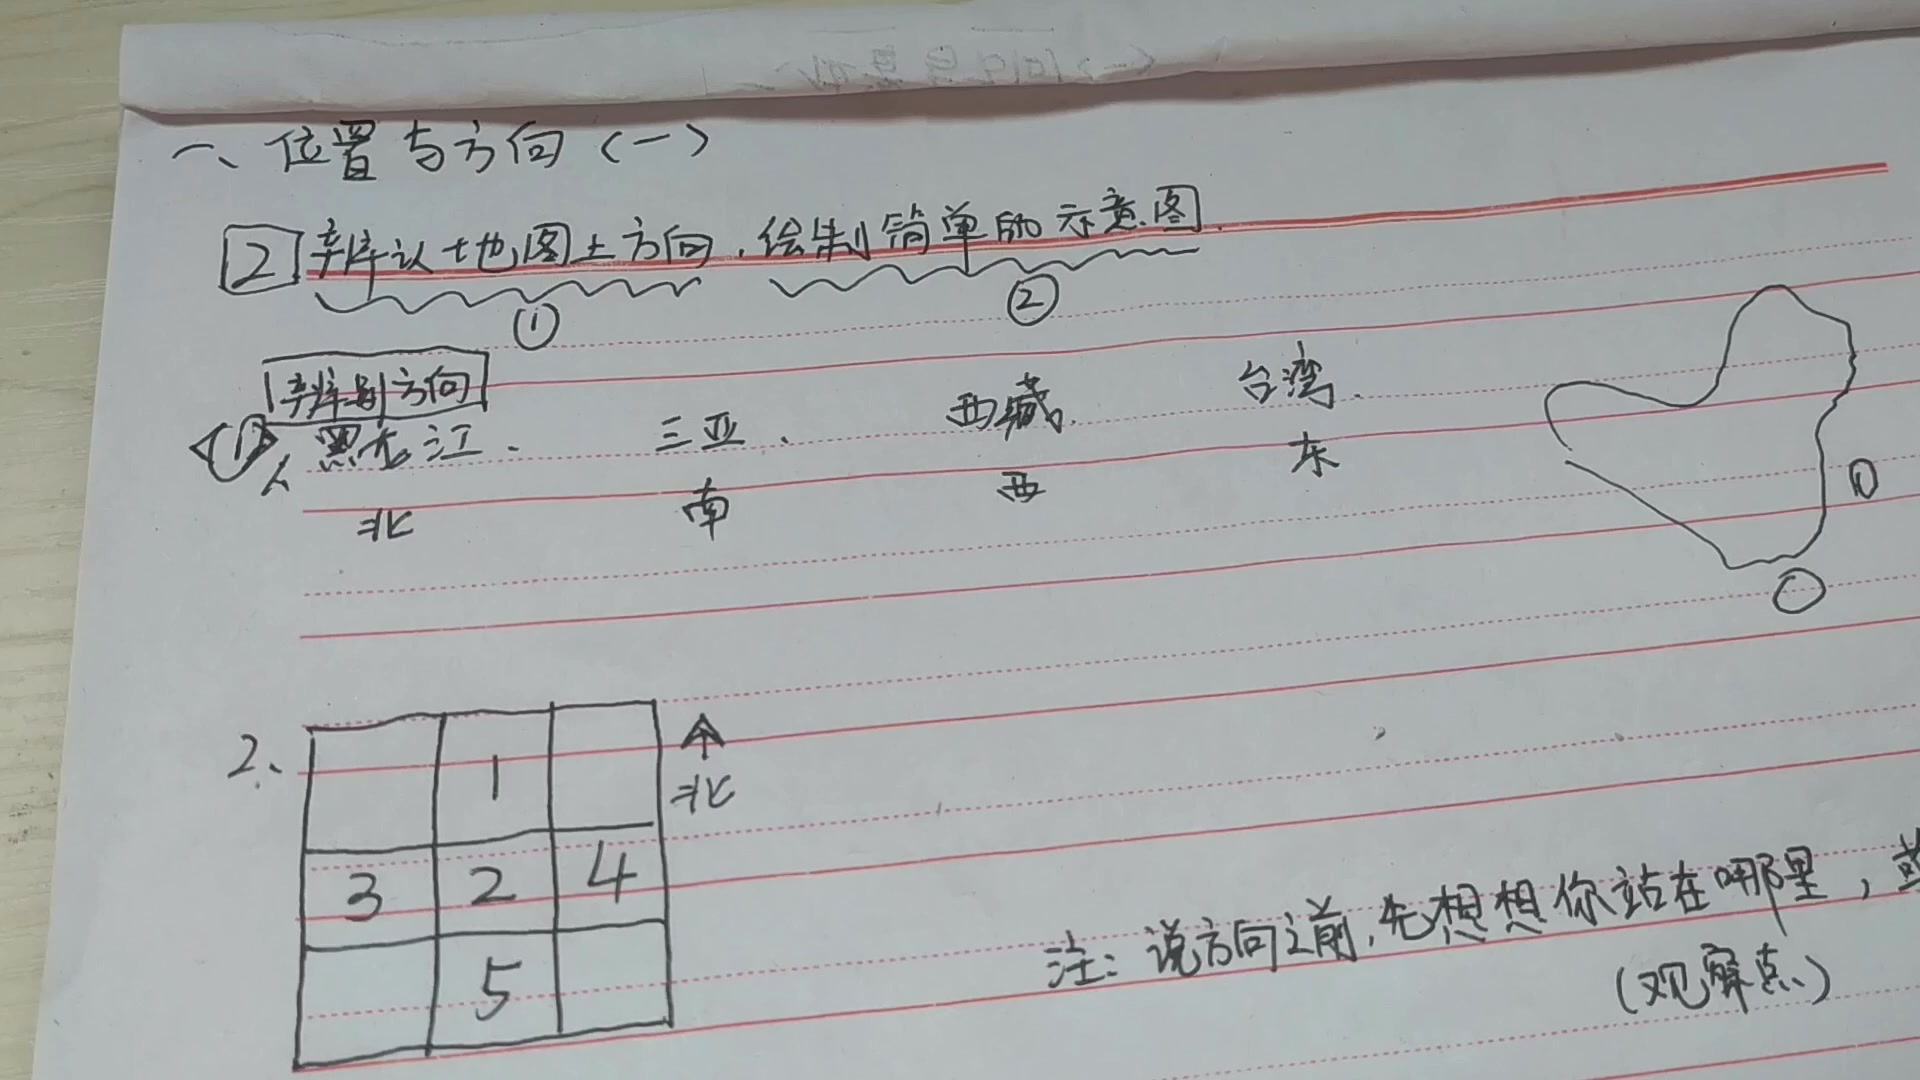 一、位置与方向（一）
2 辨认地图上方向，绘制简单的示意图.
① ②
辨别方向
黑龙江. 三亚. 西藏. 台湾.
北 南 西 东
2、
1
↑
北
3 2 4
5
注：说方向之前，先想想你站在哪里，或
（观察点）